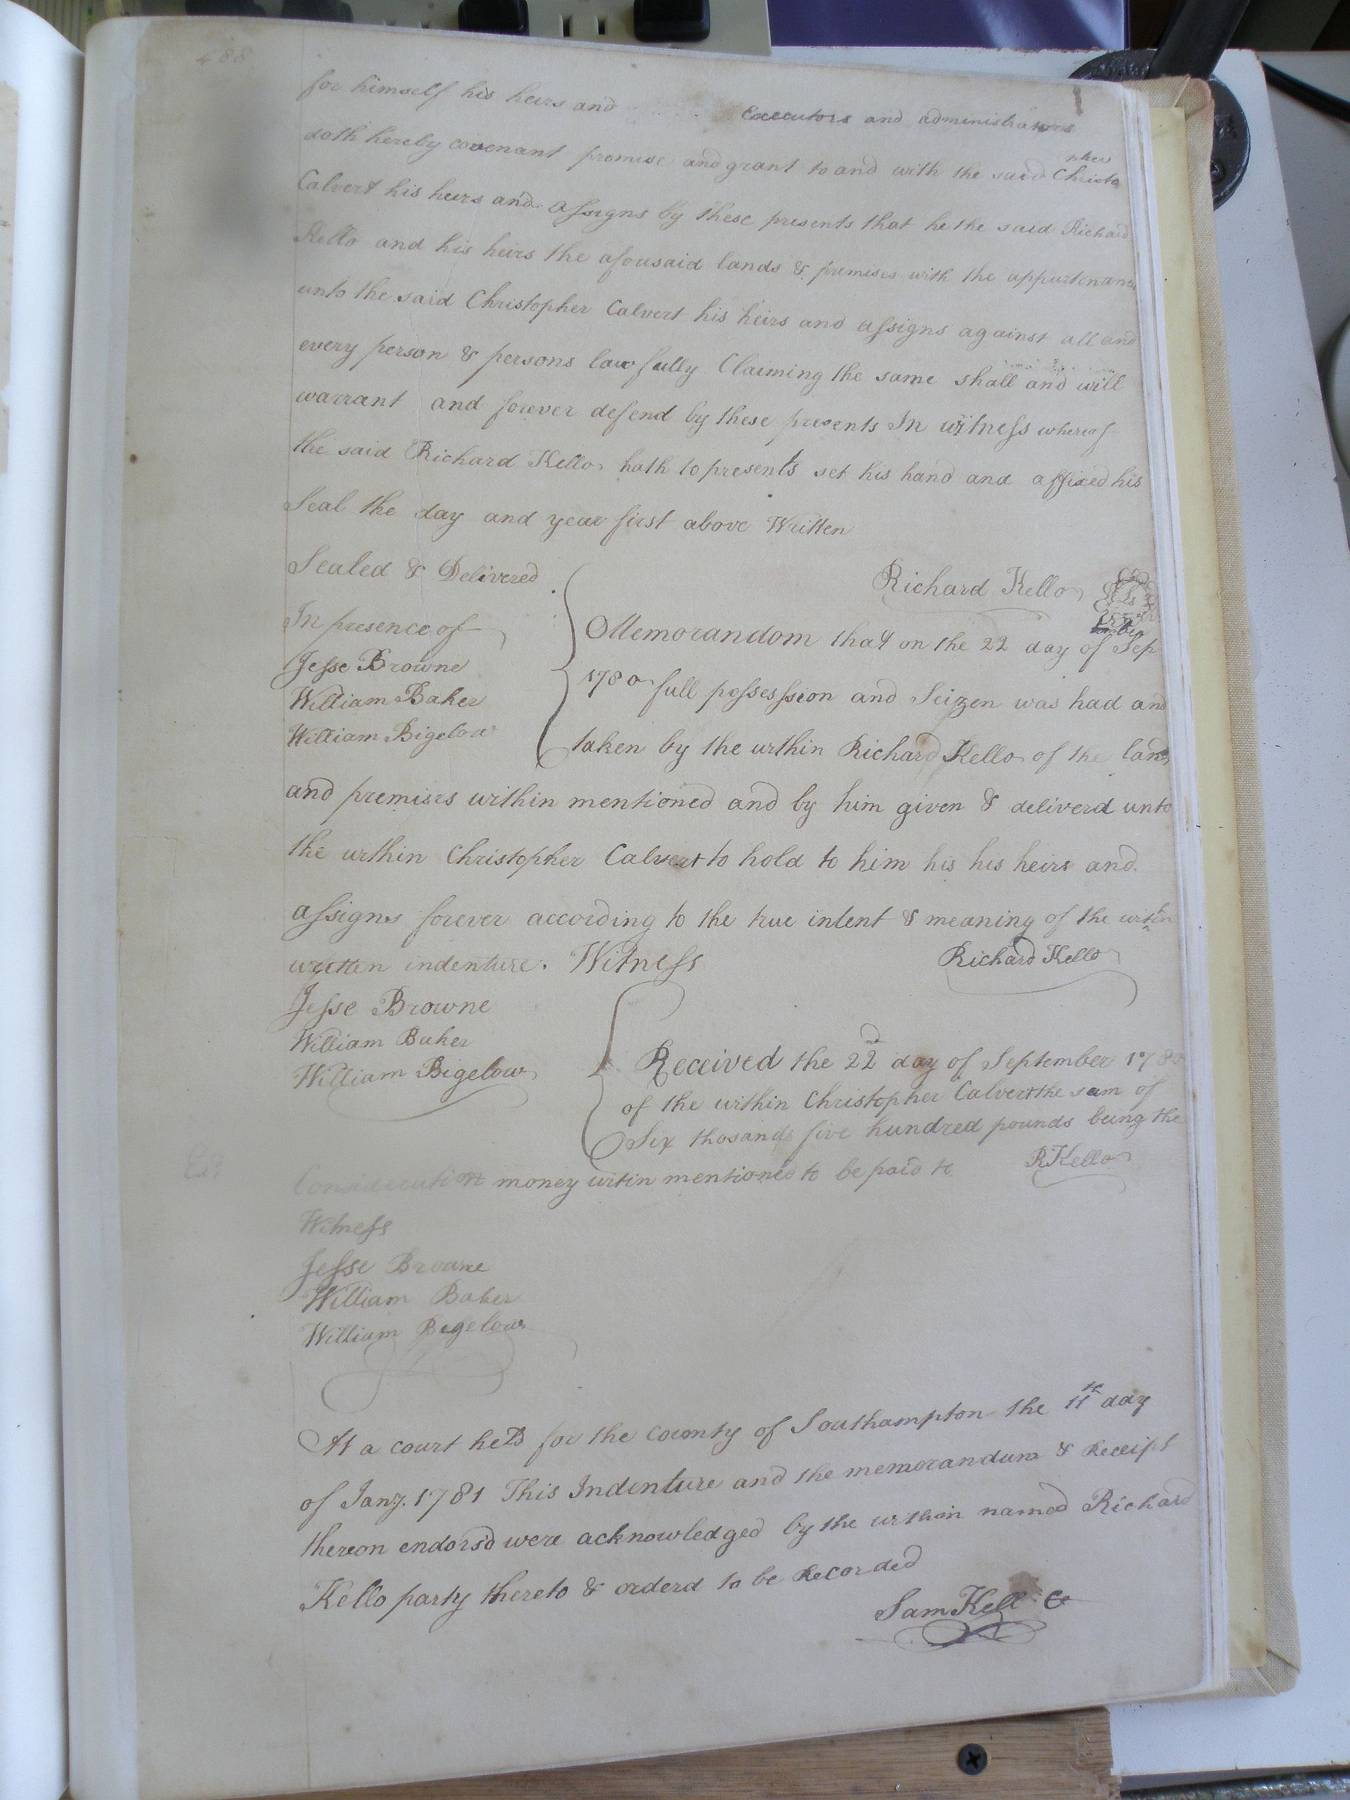 488
for himself his heirs and Executors and administrators
doth hereby covenant promise and grant to and with the said Christopher
Calvert his heirs and assigns by these presents that he the said Richard
Kello and his heirs the afousaid lands & premises with the appurtenances
unto the said Christopher Calvert his heirs and assigns against all and
every person & persons lawfully Claiming the same shall and will
warrant and forever defend by these presents In witness whereof
the said Richard Kello hath to presents set his hand and affixed his
Seal the day and year first above Written
Sealed & Delivered
In presence of
Jesse Browne
William Baker
William Bigelow
Richard Kello
Memorandom that on the 22 day of Sep
1780 full possession and Seizen was had and
taken by the within Richard Kello of the land
and premises within mentioned and by him given & deliverd unto
the within Christopher Calvert to hold to him his his heirs and
assigns forever according to the true intent & meaning of the within
written indenture. Witness
Richard Kello
Jesse Browne
William Baker
William Bigelow
Received the 22d day of September 1780
of the within Christopher Calvert the sum of
Six thosands five hundred pounds being the
Consideration money witin mentioned to be paid to
RKello
Witness
Jesse Browne
William Baker
William Bigelow
At a court held for the county of Southampton the 11th day
of Jany. 1781 This Indenture and the memorandum & Receipt
thereon endorsd were acknowledged by the within named Richard
Kello party thereto & orderd to be Recorded
Sam Kell